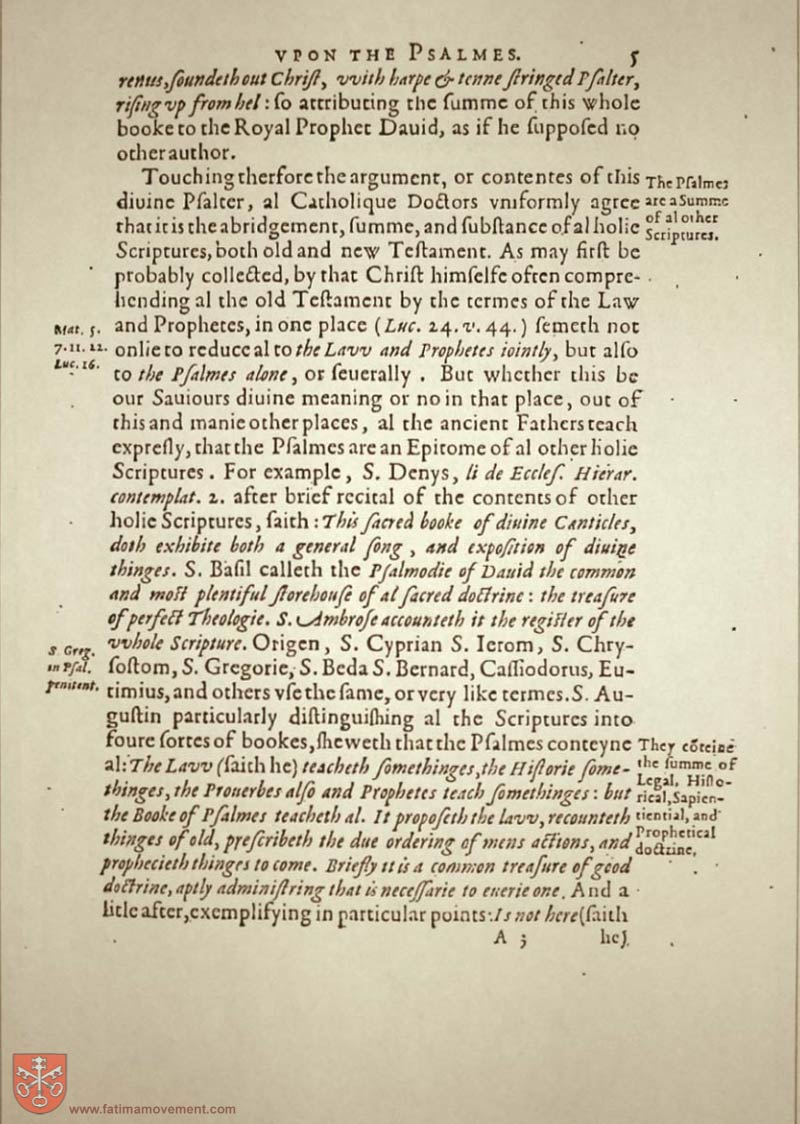 VPON THE PSALMES. 5
renus, ſoundeth out Chriſt, vvith harpe & tenne ſtringed Pſalter,
riſing vp from hel: ſo attributing the ſumme of this whole
booke to the Royal Prophet Dauid, as if he ſuppoſed no
other author.
Touching therfore the argument, or contentes of this
diuine Pſalter, al Catholique Doctors vniformly agree
that it is the abridgement, ſumme, and ſubſtance of al holie
Scriptures, both old and new Teſtament. As may firſt be
probably collected, by that Chriſt himſelfe often compre-
hending al the old Teſtament by the termes of the Law
and Prophetes, in one place (Luc. 24. v. 44.) ſemeth not
onlie to reduce al to the Lavv and Prophetes iointly, but alſo
to the Pſalmes alone, or ſeuerally. But whether this be
our Sauiours diuine meaning or no in that place, out of
this and manie other places, al the ancient Fathers teach
expreſly, that the Pſalmes are an Epitome of al other holie
Scriptures. For example, S. Denys, li de Eccleſ. Hierar.
contemplat. 2. after brief recital of the contents of other
holie Scriptures, ſaith: This ſacred booke of diuine Canticles,
doth exhibite both a general ſong, and expoſition of diuine
thinges. S. Baſil calleth the Pſalmodie of Dauid the common
and moſt plentiful ſtorehouſe of al ſacred doctrine: the treaſure
of perfect Theologie. S. Ambroſe accounteth it the regiſter of the
vvhole Scripture. Origen, S. Cyprian S. Ierom, S. Chry-
ſoſtom, S. Gregorie, S. Beda S. Bernard, Caſſiodorus, Eu-
timius, and others vſe the ſame, or very like termes. S. Au-
guſtin particularly diſtinguiſhing al the Scriptures into
foure ſortes of bookes, ſheweth that the Pſalmes conteyne
al: The Lavv (ſaith he) teacheth ſomethinges, the Hiſtorie ſome-
thinges, the Prouerbes alſo and Prophetes teach ſomethinges: but
the Booke of Pſalmes teacheth al. It propoſeth the lavv, recounteth
thinges of old, preſcribeth the due ordering of mens actions, and
prophecieth thinges to come. Briefly it is a common treaſure of good
doctrine, aptly adminiſtring that is neceſſarie to euerie one. And a
litle after, exemplifying in particular points: Is not here (ſaith
A 3 he)
The Pſalmes
are a Summe
of al other
Scriptures.
Mat. 5.
7. 11. 22.
Luc. 16.
S Greg.
in Pſal.
penitent.
They cõteine
the ſumme of
Legal, Hiſto-
rical, Sapien-
tiential, and
Prophetical
doctrine.
www.fatimamovement.com